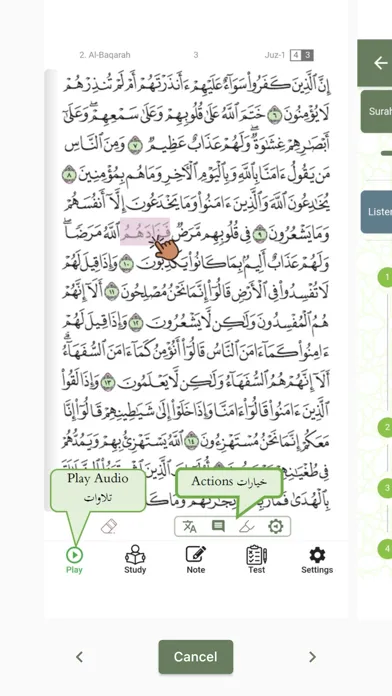 2. Al-Baqarah 3 Juz-1 4 3
إِنَّ ٱلَّذِينَ كَفَرُوا۟ سَوَآءٌ عَلَيْهِمْ ءَأَنذَرْتَهُمْ أَمْ لَمْ تُنذِرْهُمْ
لَا يُؤْمِنُونَ ٦ خَتَمَ ٱللَّهُ عَلَىٰ قُلُوبِهِمْ وَعَلَىٰ سَمْعِهِمْ ۖ وَعَلَىٰٓ
أَبْصَـٰرِهِمْ غِشَـٰوَةٌ ۖ وَلَهُمْ عَذَابٌ عَظِيمٌ ٧ وَمِنَ ٱلنَّاسِ
مَن يَقُولُ ءَامَنَّا بِٱللَّهِ وَبِٱلْيَوْمِ ٱلْـَٔاخِرِ وَمَا هُم بِمُؤْمِنِينَ ٨
يُخَـٰدِعُونَ ٱللَّهَ وَٱلَّذِينَ ءَامَنُوا۟ وَمَا يَخْدَعُونَ إِلَّآ أَنفُسَهُمْ
وَمَا يَشْعُرُونَ ٩ فِى قُلُوبِهِم مَّرَضٌ فَزَادَهُمُ ٱللَّهُ مَرَضًا ۖ
وَلَهُمْ عَذَابٌ أَلِيمٌۢ بِمَا كَانُوا۟ يَكْذِبُونَ ١٠ وَإِذَا قِيلَ لَهُمْ
لَا تُفْسِدُوا۟ فِى ٱلْأَرْضِ قَالُوٓا۟ إِنَّمَا نَحْنُ مُصْلِحُونَ ١١ أَلَآ إِنَّهُمْ
هُمُ ٱلْمُفْسِدُونَ وَلَـٰكِن لَّا يَشْعُرُونَ ١٢ وَإِذَا قِيلَ لَهُمْ
ءَامِنُوا۟ كَمَآ ءَامَنَ ٱلنَّاسُ قَالُوٓا۟ أَنُؤْمِنُ كَمَآ ءَامَنَ ٱلسُّفَهَآءُ ۗ
أَلَآ إِنَّهُمْ هُمُ ٱلسُّفَهَآءُ وَلَـٰكِن لَّا يَعْلَمُونَ ١٣ وَإِذَا لَقُوا۟
ٱلَّذِينَ ءَامَنُوا۟ قَالُوٓا۟ ءَامَنَّا وَإِذَا خَلَوْا۟ إِلَىٰ شَيَـٰطِينِهِمْ قَالُوٓا۟ إِنَّا
مَعَكُمْ إِنَّمَا نَحْنُ مُسْتَهْزِءُونَ ١٤ ٱللَّهُ يَسْتَهْزِئُ بِهِمْ وَيَمُدُّهُمْ
فِى طُغْيَـٰنِهِمْ
بِٱلْهُدَىٰ فَمَا
Play Audio
تلاوات
Actions خيارات
Play Study Note Test Settings
Cancel
Surah
Listen
1
2
3
4